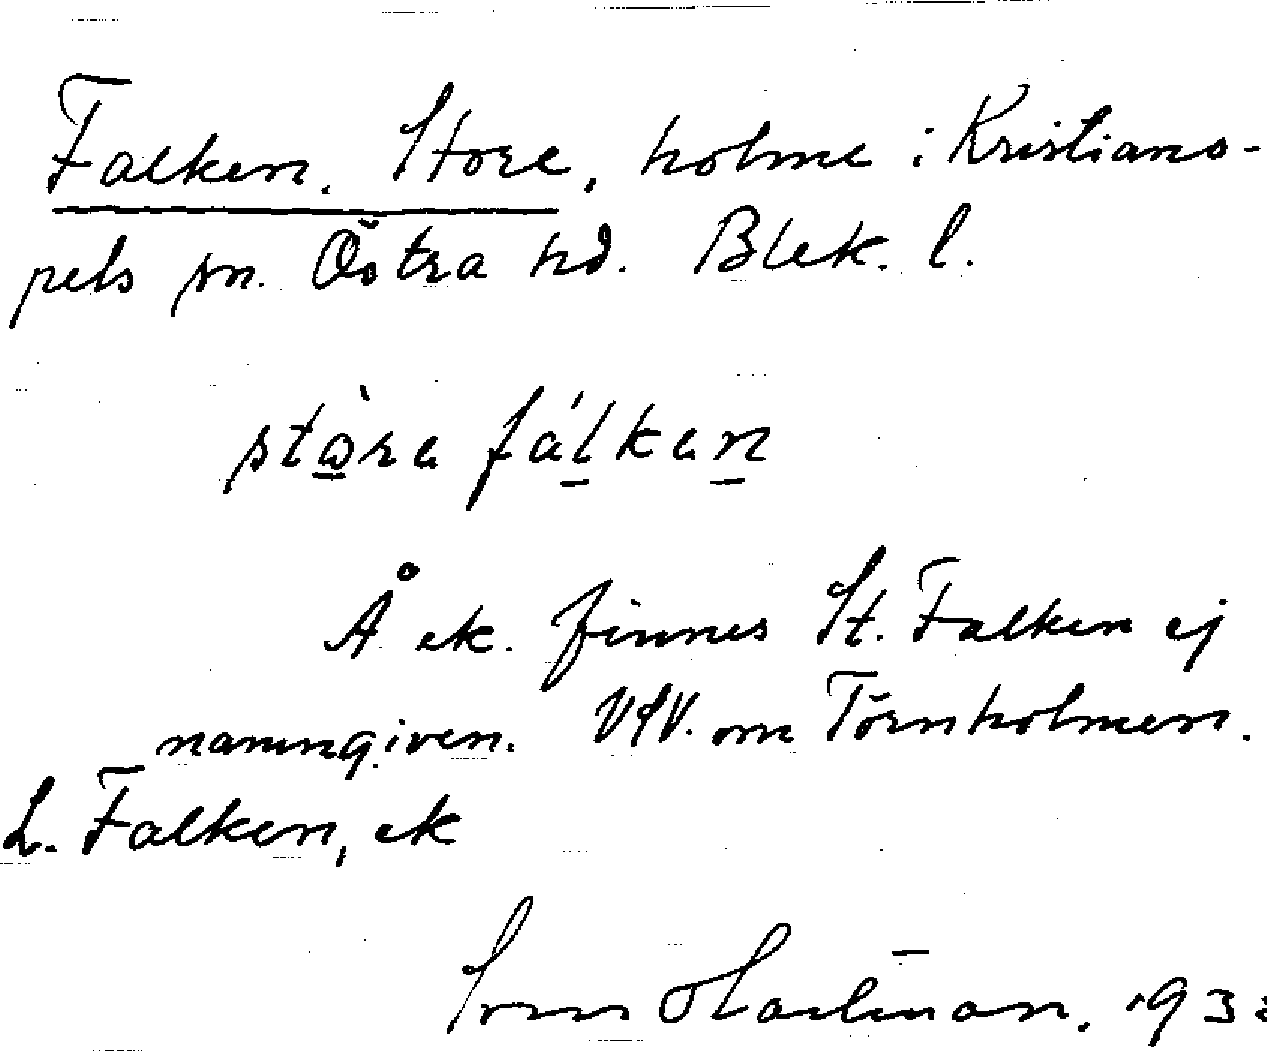 Falken. Store, holme i Kristiano-
pels sn. Östra hd. Blek. l.
stòra fálkan
Å ek. finnes St. Falken ej
namngiven. VSV. om Törnholmen.
L. Falken, ek
Sven Hartman. 193